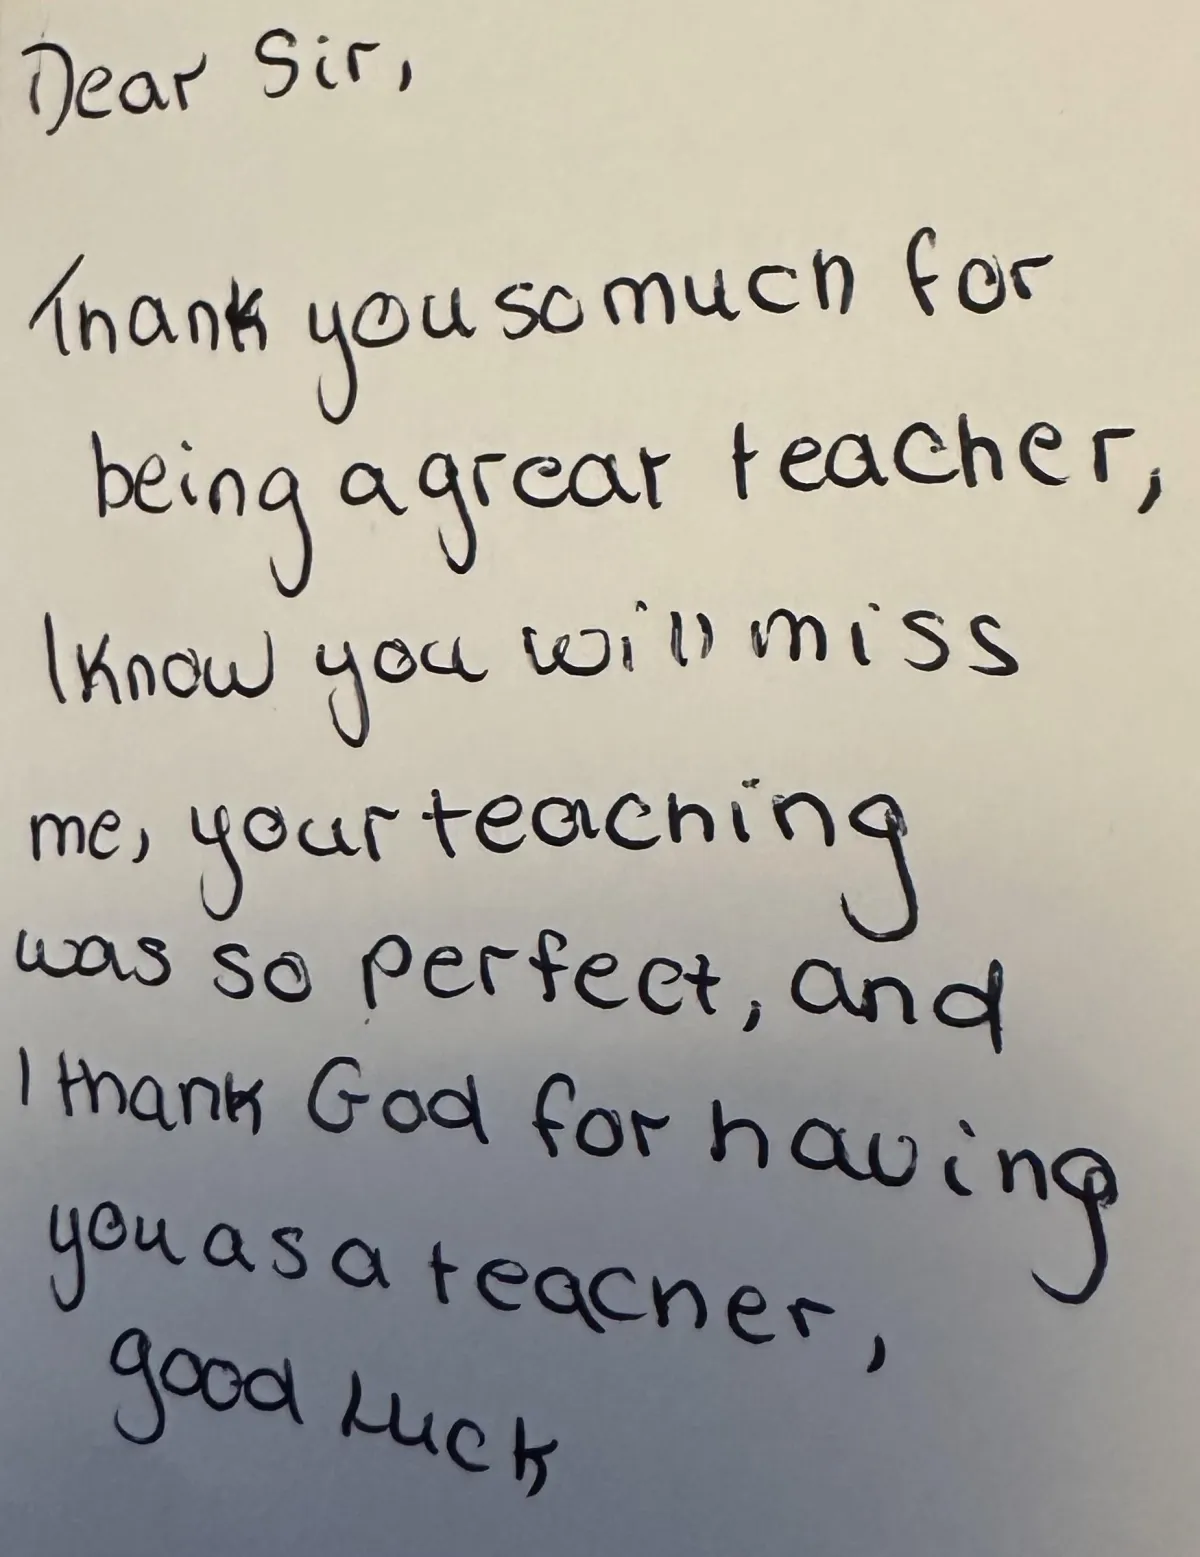 Dear Sir,
Thank you so much for
being a great teacher,
I know you will miss
me, your teaching
was so perfect, and
I thank God for having
you as a teacher,
good Luck